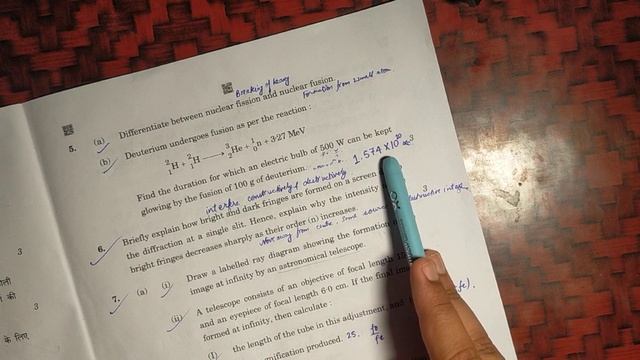 Breaking of heavy
Formation from small atom.
5. (a) Differentiate between nuclear fission and nuclear fusion.
(b) Deuterium undergoes fusion as per the reaction :
²₁H + ²₁H ⟶ ³₂He + ¹₀n + 3·27 MeV
Find the duration for which an electric bulb of 500 W can be kept
glowing by the fusion of 100 g of deuterium. 1.574 × 10¹⁰ 3
interfere constructively & destructively
6. Briefly explain how bright and dark fringes are formed on a screen
the diffraction at a single slit. Hence, explain why the intensity 3
bright fringes decreases sharply as their order (n) increases.
away from centre, from source
7. (a) (i) Draw a labelled ray diagram showing the formation
image at infinity by an astronomical telescope.
(ii) A telescope consists of an objective of focal length
and an eyepiece of focal length 6·0 cm. If the final
formed at infinity, then calculate :
(I) the length of the tube in this adjustment, and
magnification produced. 25. fo/fe
3
की
3
के लिए